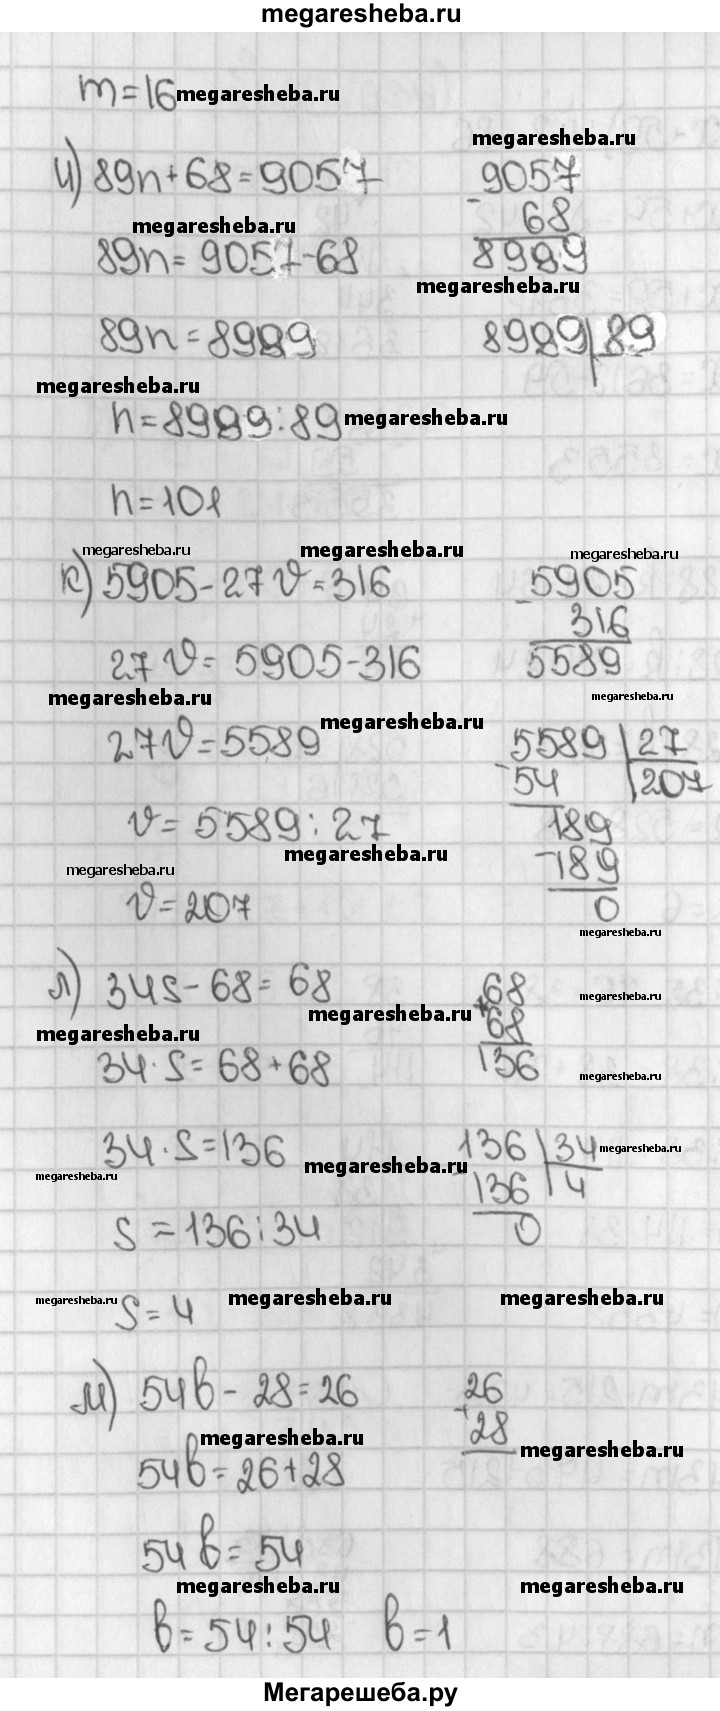 megaresheba.ru
m=16 megaresheba.ru
megaresheba.ru
и) 89n+68=9057
- 9057
68
8989
megaresheba.ru
89n= 9057-68
megaresheba.ru
89n=8989
8989 89
megaresheba.ru
n=8989:89 megaresheba.ru
n=101
megaresheba.ru megaresheba.ru megaresheba.ru
к) 5905-27v=316
- 5905
316
5589
27v= 5905-316
megaresheba.ru megaresheba.ru
megaresheba.ru
27v=5589
- 5589 27
54 207
189
- 189
0
v= 5589:27
megaresheba.ru
megaresheba.ru
v=207
megaresheba.ru
л) 34s-68=68
+ 68
68
136
megaresheba.ru
megaresheba.ru megaresheba.ru
34·s=68+68
megaresheba.ru
34·s=136
136 34 megaresheba.ru
136 4
0
megaresheba.ru megaresheba.ru
s=136:34
megaresheba.ru s=4 megaresheba.ru megaresheba.ru
м) 54b-28=26
+ 26
28
megaresheba.ru megaresheba.ru
54b=26+28
54b=54
megaresheba.ru megaresheba.ru
b=54:54 b=1
Мегарешеба.ру